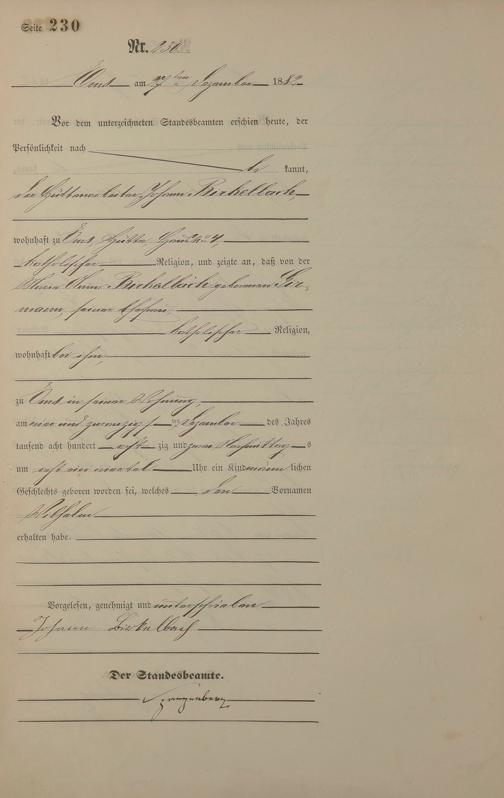 Seite 230
Nr. 230
Ems am 27ten Dezember 1882
Vor dem unterzeichneten Standesbeamten erschien heute, der
Persönlichkeit nach
be kannt,
der Hüttenarbeiter Johann Birkelbach
wohnhaft zu Ems, Hütte
katholischer Religion, und zeigte an, daß von der
Birkelbach geborenen
seiner Ehefrau
katholischer Religion,
wohnhaft bei ihm,
zu Ems in seiner Wohnung,
am ein und zwanzigsten Dezember des Jahres
tausend acht hundert acht zig und zwei Nachmittag s
um acht ein viertel Uhr ein Kind männ lichen
Geschlechts geboren worden sei, welches den Vornamen
Wilhelm
erhalten habe.
Vorgelesen, genehmigt und unterschrieben
Johann Birkelbach
Der Standesbeamte.